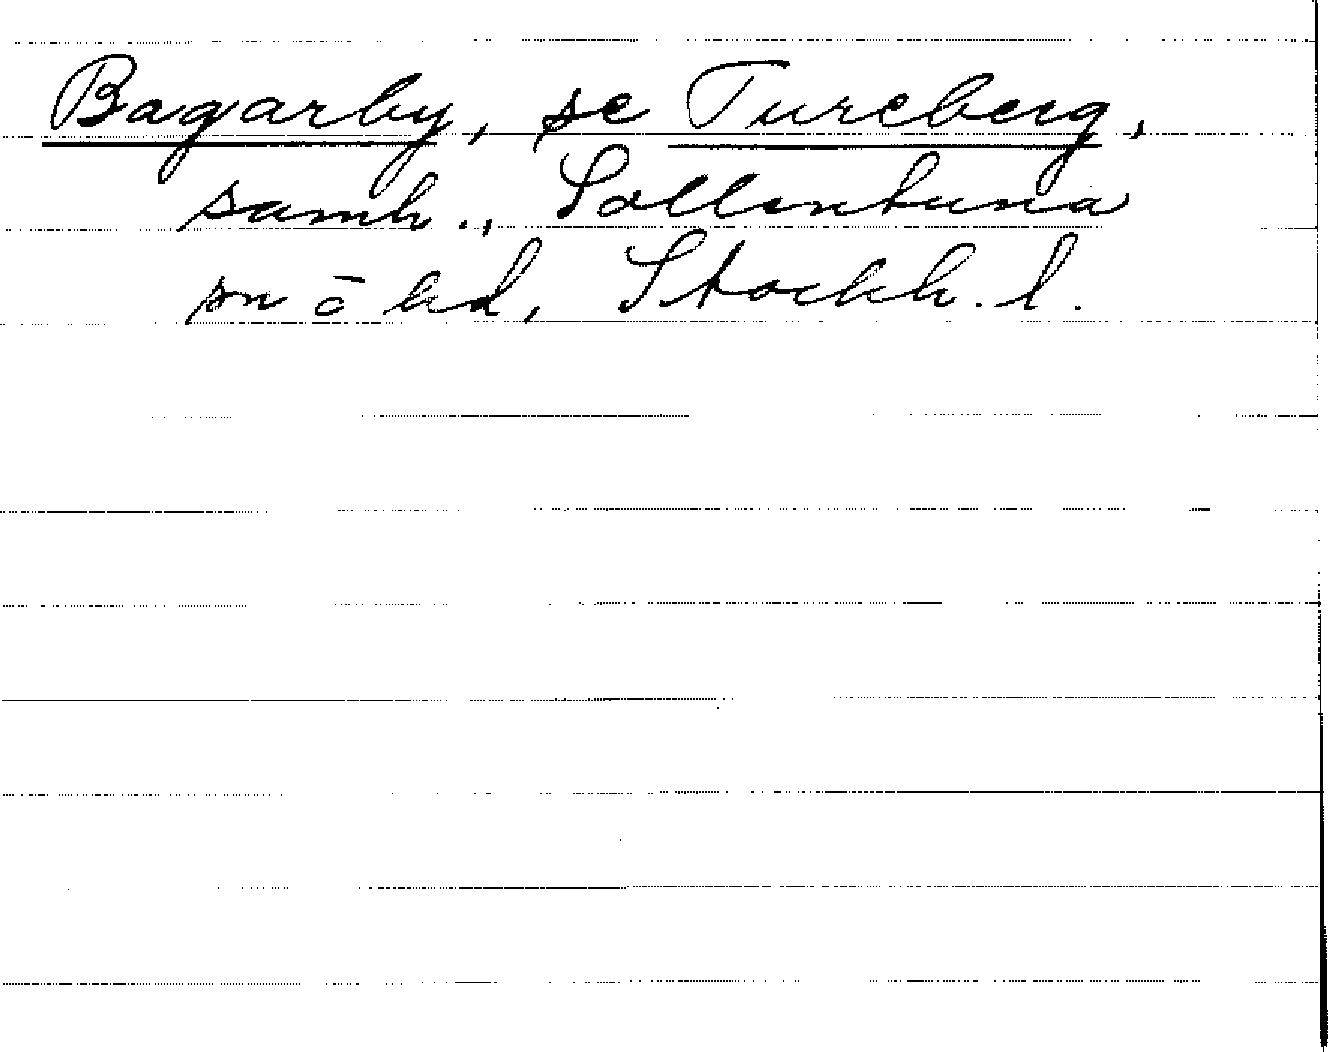 Bagarby, se Tureberg,
samh., Sollentuna
sn o hd, Stockh. l.